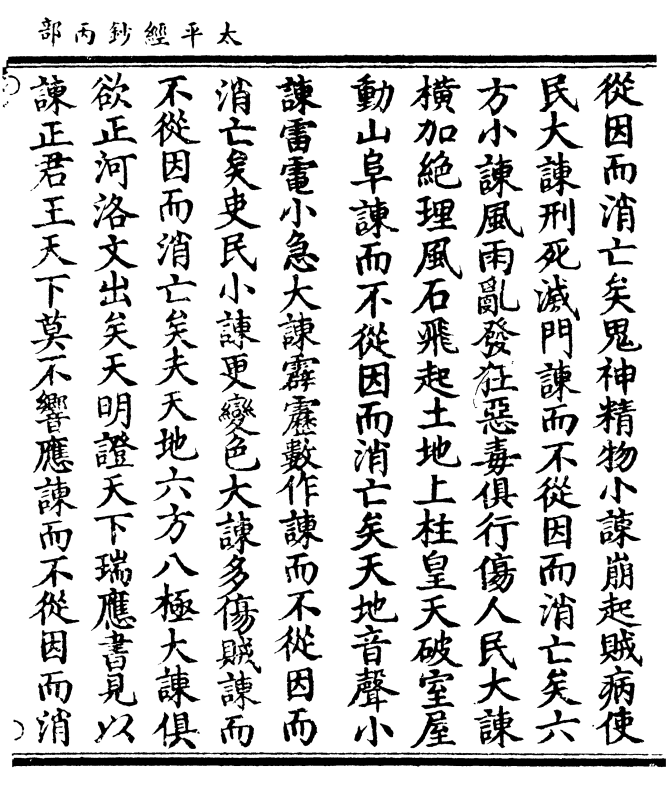 太平經鈔丙部
從因而消亡矣鬼神精物小諫崩起賊病使
民大諫刑死滅門諫而不從因而消亡矣六
方小諫風雨亂發狂惡毒俱行傷人民大諫
橫加絶理風石飛起土地上柱皇天破室屋
動山阜諫而不從因而消亡矣天地音聲小
諫雷電小急大諫霹靂數作諫而不從因而
消亡矣吏民小諫更變色大諫多傷賊諫而
不從因而消亡矣夫天地六方八極大諫俱
欲正河洛文出矣天明證天下瑞應書見以
諫正君王天下莫不響應諫而不從因而消